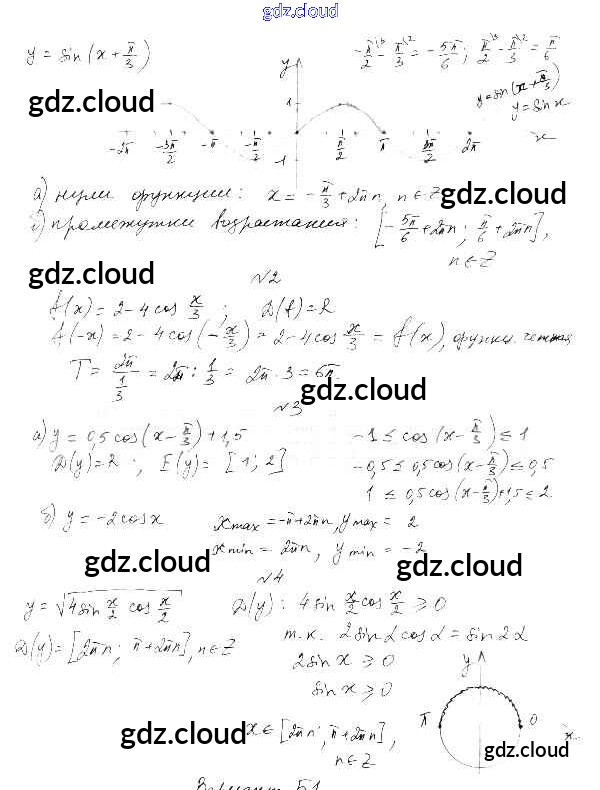 gdz.cloud
y = sin(x + π/3)
-π/2 - π/3 = -5π/6; π/2 - π/3 = π/6
y = sin(x + π/3)
y = sin x
gdz.cloud
y
1
-2π -3π/2 -π -π/2 π/2 π 3π/2 2π x
1
а) нули функции: x = -π/3 + 2πn, n ∈ Z
gdz.cloud
б) промежутки возрастания: [-5π/6 + 2πn; π/6 + 2πn],
n ∈ Z
gdz.cloud
N2
f(x) = 2 - 4cos x/3; D(f) = R
f(-x) = 2 - 4cos(-x/3) = 2 - 4cos x/3 = f(x), функц. четная
T = 2π/(1/3) = 2π : 1/3 = 2π · 3 = 6π
gdz.cloud
N3
а) y = 0,5cos(x - π/3) + 1,5
-1 ≤ cos(x - π/3) ≤ 1
D(y) = R; E(y) = [1; 2]
-0,5 ≤ 0,5cos(x - π/3) ≤ 0,5
1 ≤ 0,5cos(x - π/3) + 1,5 ≤ 2
б) y = -2cos x
xmax = -π + 2πn, ymax = 2
xmin = 2πn, ymin = -2
gdz.cloud
gdz.cloud
N4
y = √(4sin x/2 cos x/2)
D(y): 4sin x/2 cos x/2 ≥ 0
D(y) = [2πn; π + 2πn], n ∈ Z
т.к. 2sin α cos α = sin 2α
2sin x ≥ 0
sin x ≥ 0
y
π 0 x
gdz.cloud
x ∈ [2πn; π + 2πn],
n ∈ Z
gdz.cloud
Вариант Б1